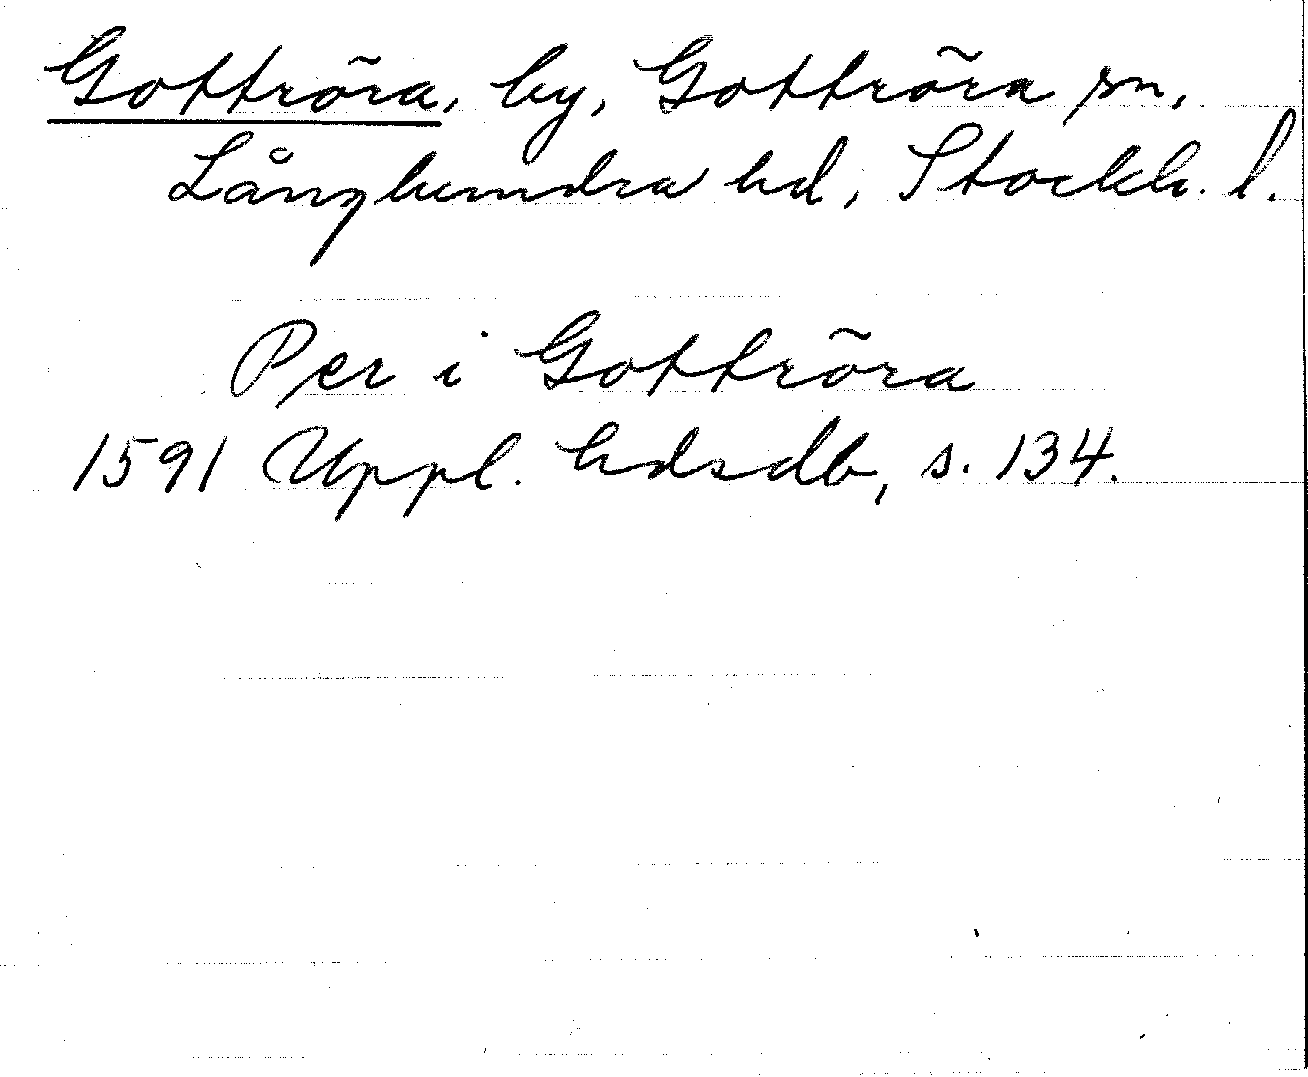 Gottröra, by, Gottröra sn,
Långhundra hd, Stockh. l.
Per i Gottröra
1591 Uppl. hdsdb, s. 134.